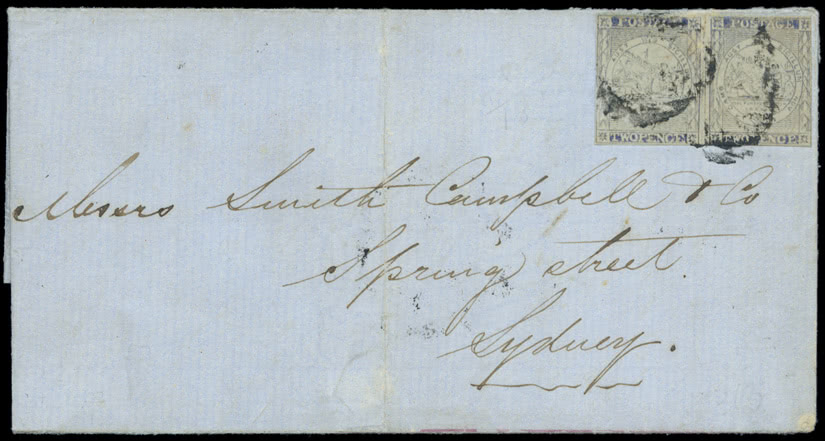 POSTAGE POSTAGE
TWOPENCE TWOPENCE
Messrs Smith Campbell & Co
Spring street.
Sydney.